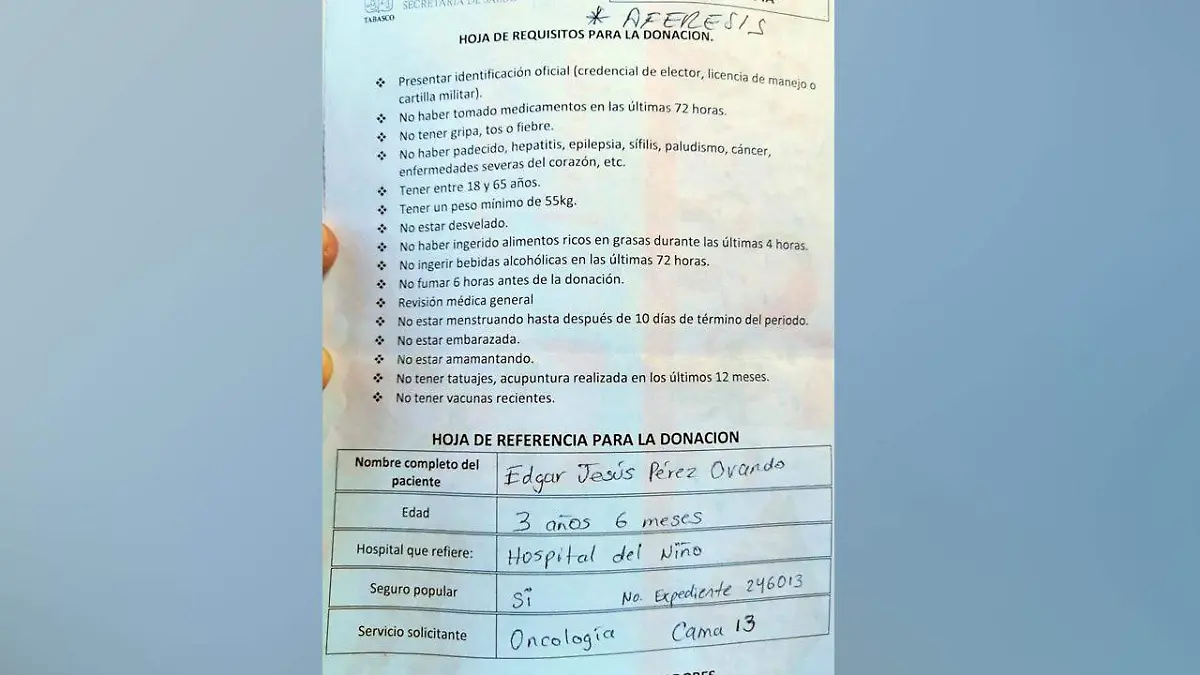 TABASCO
SECRETARÍA DE SALUD
* AFERESIS
HOJA DE REQUISITOS PARA LA DONACION.
❖ Presentar identificación oficial (credencial de elector, licencia de manejo o
cartilla militar).
❖ No haber tomado medicamentos en las últimas 72 horas.
❖ No tener gripa, tos o fiebre.
❖ No haber padecido, hepatitis, epilepsia, sífilis, paludismo, cáncer,
enfermedades severas del corazón, etc.
❖ Tener entre 18 y 65 años.
❖ Tener un peso mínimo de 55kg.
❖ No estar desvelado.
❖ No haber ingerido alimentos ricos en grasas durante las últimas 4 horas.
❖ No ingerir bebidas alcohólicas en las últimas 72 horas.
❖ No fumar 6 horas antes de la donación.
❖ Revisión médica general
❖ No estar menstruando hasta después de 10 días de término del periodo.
❖ No estar embarazada.
❖ No estar amamantando.
❖ No tener tatuajes, acupuntura realizada en los últimos 12 meses.
❖ No tener vacunas recientes.
HOJA DE REFERENCIA PARA LA DONACION
Nombre completo del
paciente
Edgar Jesús Pérez Ovando
Edad
3 años 6 meses
Hospital que refiere:
Hospital del Niño
Seguro popular
Si No. Expediente 246013
Servicio solicitante
Oncología Cama 13